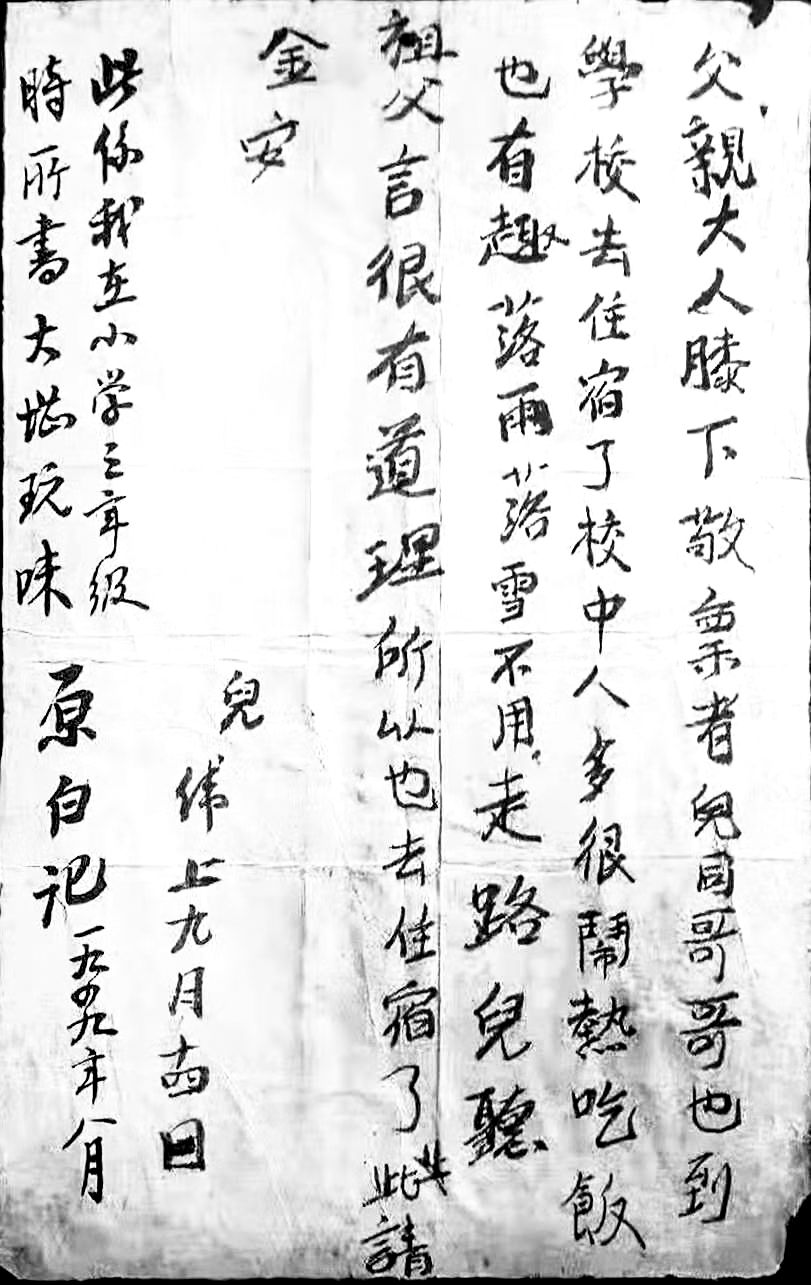 父親大人膝下敬稟者兒因哥哥也到
學校去住宿了校中人多很鬧熱吃飯
也有趣落雨落雪不用走路兒聽
祖父言很有道理所以也去住宿了此請
金安
兒偉上九月十四日
此係我在小学三年级
時所書大堪玩味
原白记一九四九年八月